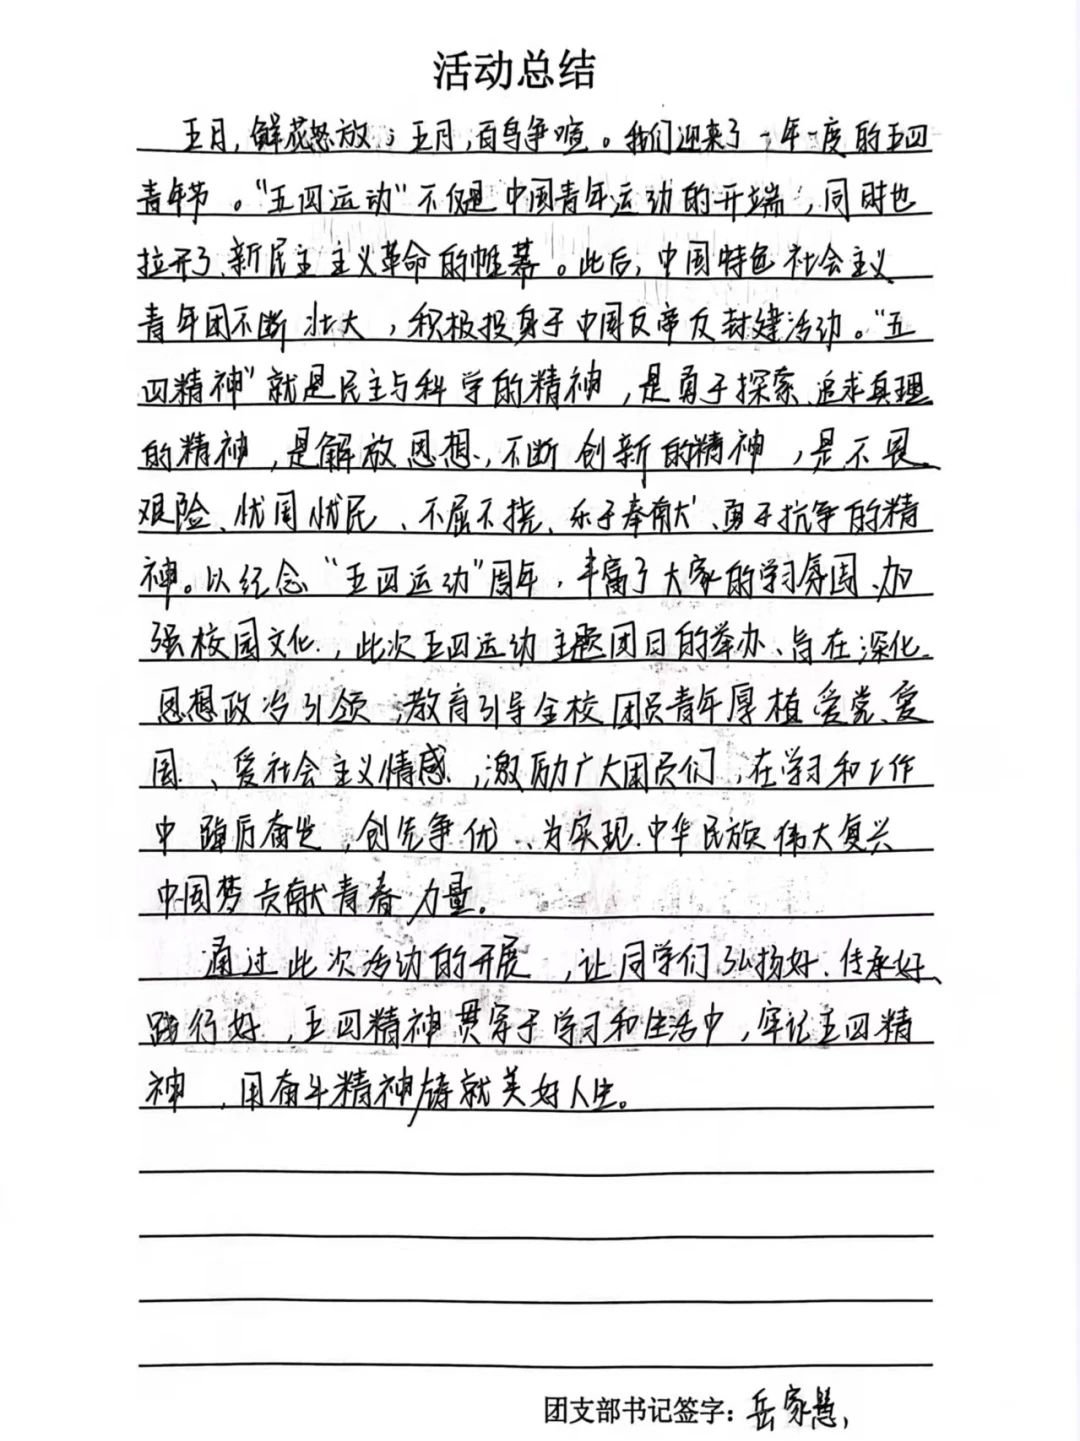 活动总结
五月，鲜花怒放；五月，百鸟争喧。我们迎来了一年一度的五四
青年节。“五四运动”不仅是中国青年运动的开端，同时也
拉开了新民主主义革命的帷幕。此后，中国特色社会主义
青年团不断壮大，积极投身于中国反帝反封建活动。“五
四精神”就是民主与科学的精神，是勇于探索、追求真理
的精神，是解放思想、不断创新的精神，是不畏
艰险、忧国忧民、不屈不挠、乐于奉献、勇于抗争的精
神。以纪念“五四运动”周年，丰富了大家的学习氛围、加
强校园文化，此次五四运动主题团日的举办、旨在深化
思想政治引领，教育引导全校团员青年厚植爱党、爱
国、爱社会主义情感，激励广大团员们，在学习和工作
中踔厉奋发，创先争优、为实现中华民族伟大复兴
中国梦贡献青春力量。
通过此次活动的开展，让同学们弘扬好、传承好、
践行好，五四精神贯穿于学习和生活中，牢记五四精
神，用奋斗精神铸就美好人生。
团支部书记签字：岳家慧